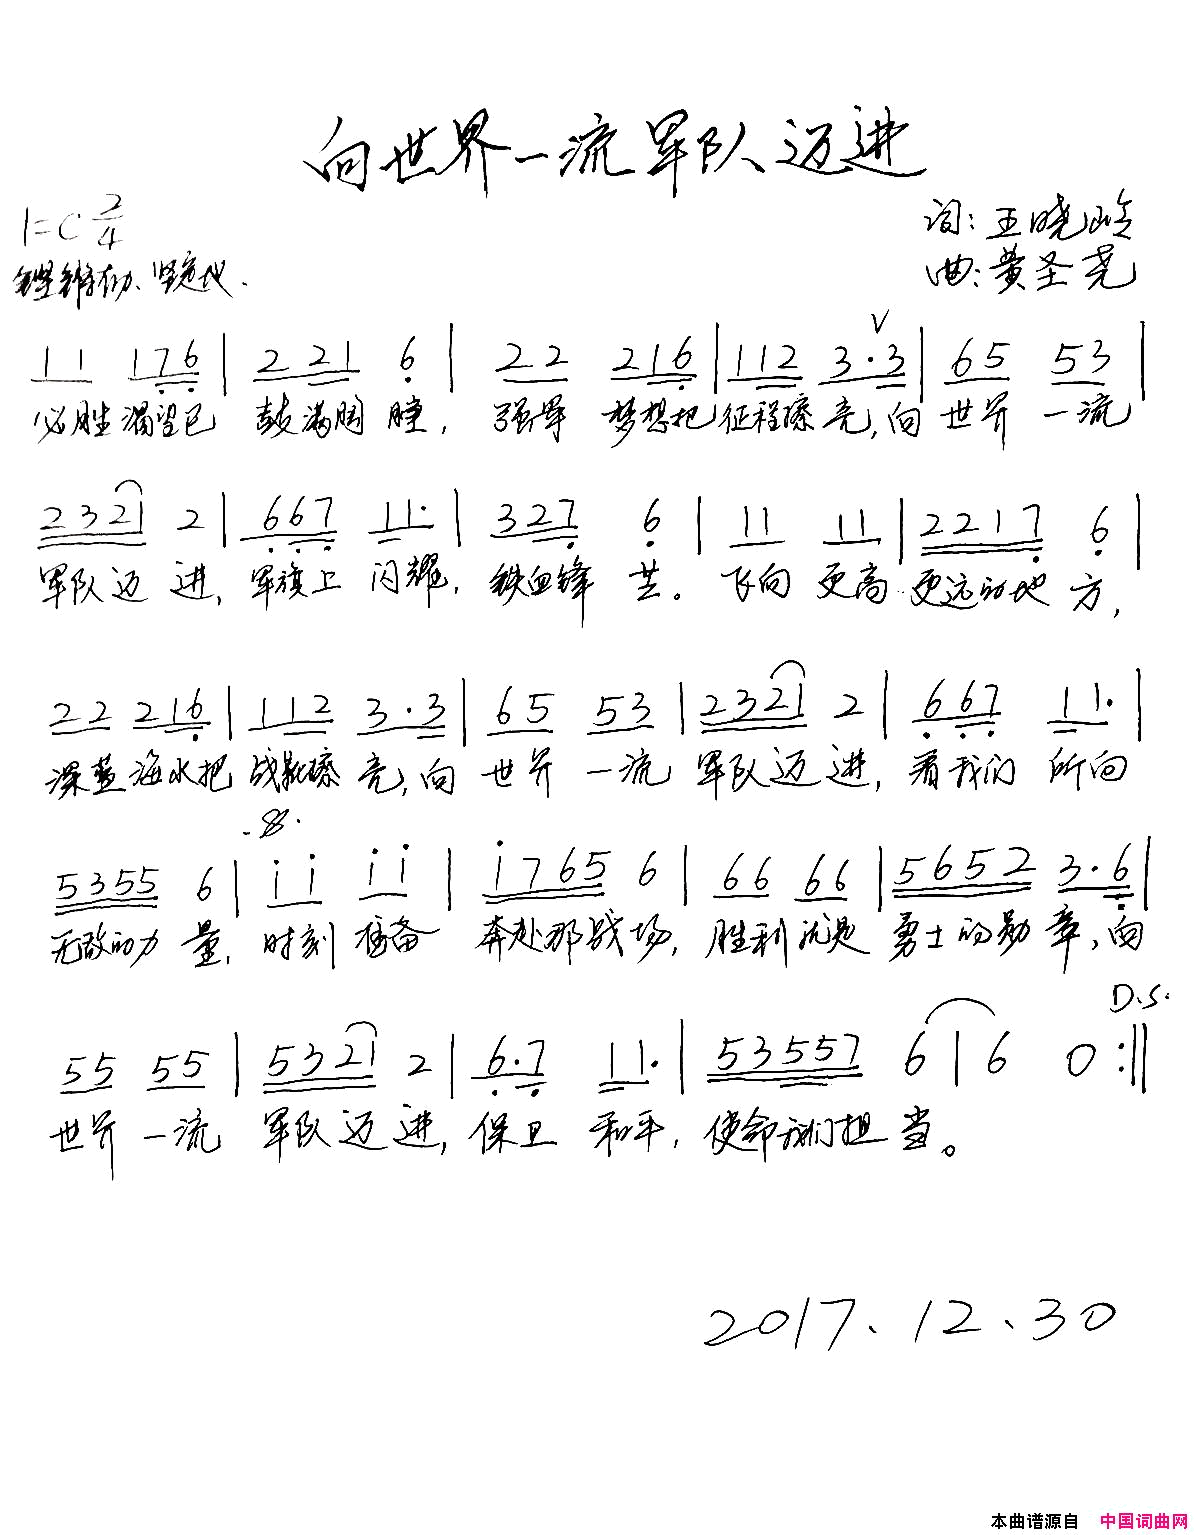 向世界一流军队迈进
1=C 2/4
词：王晓岭
铿锵有力、坚定地.
曲：黄圣尧
V
11 176 | 2 21 6 | 22 216 | 112 3·3 | 65 53 |
必胜渴望已 鼓满胸膛，强军 梦想把征程擦亮，向世界一流
2321 2 | 667 11· | 327 6 | 11 11 | 2217 6 |
军队迈进，军旗上闪耀，铁血锋芒。飞向更高更远的地方，
22 216 | 112 3·3 | 65 53 | 2321 2 | 667 11· |
深蓝海水把战靴擦亮，向世界一流军队迈进，看我们所向
5355 6 | i i i i | i765 6 | 66 66 | 5652 3·6 |
无敌的力量，时刻准备奔赴那战场，胜利就是勇士的勋章，向
D.S.
55 55 | 5321 2 | 6·7 11· | 53557 6 | 6 0 :||
世界一流军队迈进，保卫和平，使命我们担当。
2017.12.30
本曲谱源自 中国词曲网